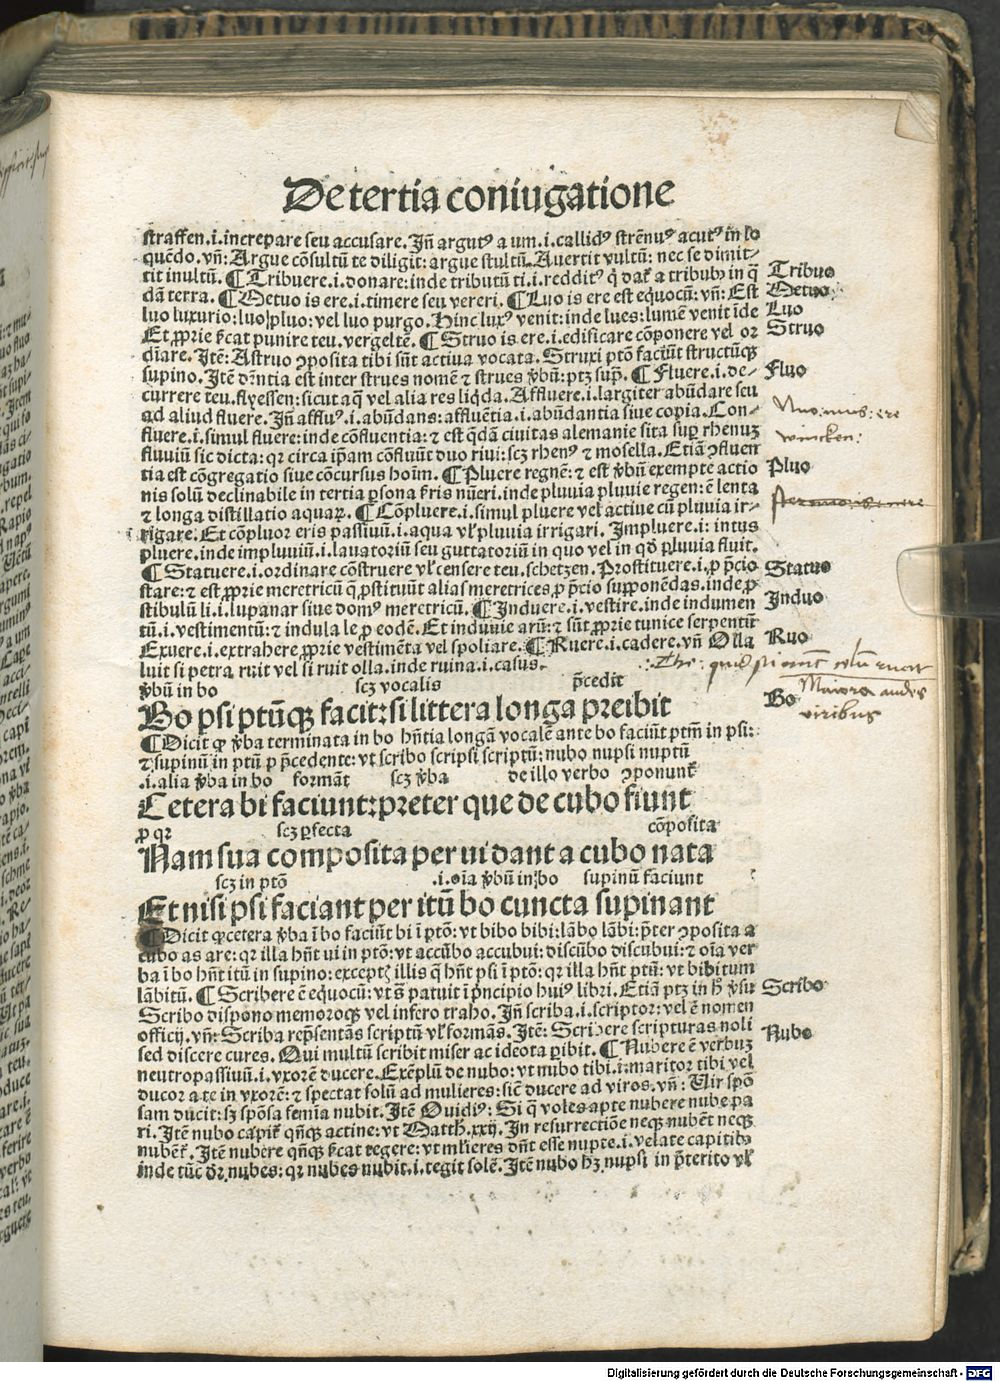 De tertia coniugatione
straffen.i.increpare seu accusare. Jn̄ argutꝰ a um.i.callidꝰ strēnuꝰ acutꝰ in lo
quēdo. vn̄: Argue cōsultū te diligit: argue stultū. Auertit vultū: nec se dimit-
tit inultū. ¶ Tribuere.i.donare: inde tributū ti.i.redditꝰ q̄ dat̄ a tribubꝫ in q̄
dā terra. ¶ Metuo is ere.i.timere seu vereri. ¶ Luo is ere est equocū: vn̄: Est
luo luxurio: luo pluo: vel luo purgo. Hinc luxꝰ venit: inde lues: lumē venit īde
Et ꝓprie sc̄at punire teu. vergeltē. ¶ Struo is ere.i.edificare cōponere vel or
dīare. Jtē: Astruo ꝯposita tibi sūt actiua vocata. Struxi ptō faciūt structūqꝫ
supino. Jtē dr̄ntia est inter strues nomē ⁊ strues v̄bū: ptꝫ sup̄. ¶ Fluere.i.de-
currere teu. flyessen: sicut aq̄ vel alia res liq̄da. Affluere.i.largiter abūdare seu
ad aliud fluere. Jn̄ affluꝰ.i.abūdans: affluētia.i.abūdantia siue copia. Con-
fluere.i.simul fluere: inde cōfluentia: ⁊ est q̄dā ciuitas alemanie sita suꝑ rhenuꝫ
fluuiū sic dicta: qꝛ circa ip̄am cōfluūt duo riui: scꝫ rhenꝰ ⁊ mosella. Etiā ꝯfluen
tia est cōgregatio siue cōcursus hoīm. ¶ Pluere regnē: ⁊ est v̄bū exempte actio
nis solū declinabile in tertia ꝑsona sr̄is nūeri. inde pluuia pluuie regen: ē lenta
⁊ longa distillatio aquaꝝ. ¶ Cōpluere.i.simul pluere vel actiue cū pluuia ir-
rigare. Et cōpluor eris passiuū.i.aqua vl̓ pluuia irrigari. Jmpluere.i: intus
pluere. inde impluuiū.i.lauatoriū seu guttatoriū in quo vel in qd̄ pluuia fluit.
¶ Statuere.i.ordinare cōstruere vl̓ censere teu. schetzen. Prostituere.i.ꝓ p̄cio
stare: ⁊ est ꝓprie meretricū q̄ ꝓstituūt alias meretrices ꝓ p̄cio supponēdas. inde ꝓ
stibulū li.i.lupanar siue domꝰ meretricū. ¶ Jnduere.i.vestire. inde indumen
tū.i.vestimentū: ⁊ indula le ꝓ eodē. Et induuie arū: ⁊ sūt ꝓprie tunice serpentiū
Exuere.i.extrahere ꝓprie vestimēta vel spoliare. ¶ Ruere.i.cadere. vn̄ Olla
luit si petra ruit vel si ruit olla. inde ruina.i.casus.
v̄bū in bo scꝫ vocalis p̄cedit
Bo psi ptūqꝫ facit: si littera longa preibit
¶ Dicit qꝙ v̄ba terminata in bo hn̄tia longā vocalē ante bo faciūt ptm̄ in psi:
⁊ supinū in ptū ꝓ p̄cedente: vt scribo scripsi scriptū: nubo nupsi nuptū
.i.alia v̄ba in bo formāt scꝫ v̄ba de illo verbo ꝯponunt̄
Cetera bi faciunt: preter que de cubo fiunt
ꝓ qꝛ scꝫ ꝑfecta cōposita
Nam sua composita per ui dant a cubo nata
scꝫ in ptō .i.oīa v̄bū in bo supinū faciunt
Et nisi psi faciant per itū bo cuncta supinant
¶ Dicit qꝙ cetera v̄ba ī bo faciūt bi ī ptō: vt bibo bibi: lābo lābi: p̄ter ꝯposita a
cubo as are: qꝛ illa hn̄t ui in ptō: vt accūbo accubui: discūbo discubui: ⁊ oīa ver
ba ī bo hn̄t itū in supino: exceptꝭ illis q̄ hn̄t psi ī ptō: qꝛ illa hn̄t ptū: vt bibitum
lābitū. ¶ Scribere ē equocū: vt s̄ patuit ī pn̄cipio huiꝰ libri. Etiā ptꝫ in h̄ v̄su
Scribo dispono memoroqꝫ vel infero traho. Jn̄ scriba.i.scriptor: vel ē nomen
officij. vn̄: Scriba rep̄sentās scriptū vl̓ formās. Jtē: Scribere scripturas noli
sed discere cures. Qui multū scribit miser ac ideota ꝑibit. ¶ Nubere ē verbuꝫ
neutropassiuū.i.vxorē ducere. Exēplū de nubo: vt nubo tibi.i.maritor tibi vel
ducor a te in vxorē: ⁊ spectat solū ad mulieres: sic̄ ducere ad viros. vn̄: Uir spō
sam ducit: sꝫ spōsa femīa nubit. Jtē Ouidiꝰ: Si q̄ voles apte nubere nube pa
ri. Jtē nubo capit̄ qn̄qꝫ actine: vt Matth. xxij. In resurrectiōe neqꝫ nubēt neqꝫ
nubēt̄. Jtē nubere qn̄qꝫ sc̄at tegere: vt ml̓ieres dn̄t esse nupte.i.velate capitibꝫ
inde tūc dr̄ nubes: qꝛ nubes nubit.i.tegit solē. Jtē nubo hꝫ nupsi in p̄terito vl̓
Tribuo
Metuo
Luo
Struo
Fluo
Nuo: nuis: ere
wincken:
Pluo
Statuo
Induo
Ruo
Bo
Maiora audes
viribus
Scribo
Nubo
Digitalisierung gefördert durch die Deutsche Forschungsgemeinschaft - DFG